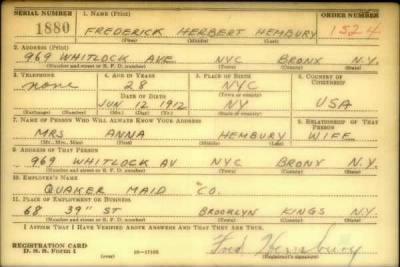 SERIAL NUMBER 1. NAME (Print) ORDER NUMBER
1880 FREDERICK HERBERT HEMBURY 1524
(First) (Middle) (Last)
2. ADDRESS (Print)
969 WHITLOCK AVE NYC BRONX N.Y.
(Number and street or R. F. D. number) (Town) (County) (State)
3. TELEPHONE 4. AGE IN YEARS 5. PLACE OF BIRTH 6. COUNTRY OF CITIZENSHIP
none 28 NYC
DATE OF BIRTH (Town or county)
JUN 12 1912 NY USA
(Exchange) (Number) (Mo.) (Day) (Yr.) (State or country)
7. NAME OF PERSON WHO WILL ALWAYS KNOW YOUR ADDRESS 8. RELATIONSHIP OF THAT PERSON
MRS ANNA HEMBURY WIFE
(Mr., Mrs., Miss) (First) (Middle) (Last)
9. ADDRESS OF THAT PERSON
969 WHITLOCK AV NYC BRONX N.Y.
(Number and street or R. F. D. number) (Town) (County) (State)
10. EMPLOYER'S NAME
QUAKER MAID CO.
11. PLACE OF EMPLOYMENT OR BUSINESS
68 39" ST BROOKLYN KINGS N.Y.
(Number and street or R. F. D. number) (Town) (County) (State)
I AFFIRM THAT I HAVE VERIFIED ABOVE ANSWERS AND THAT THEY ARE TRUE.
REGISTRATION CARD
D. S. S. Form 1 (over) 16—17105 Fred Hembury
(Registrant's signature)